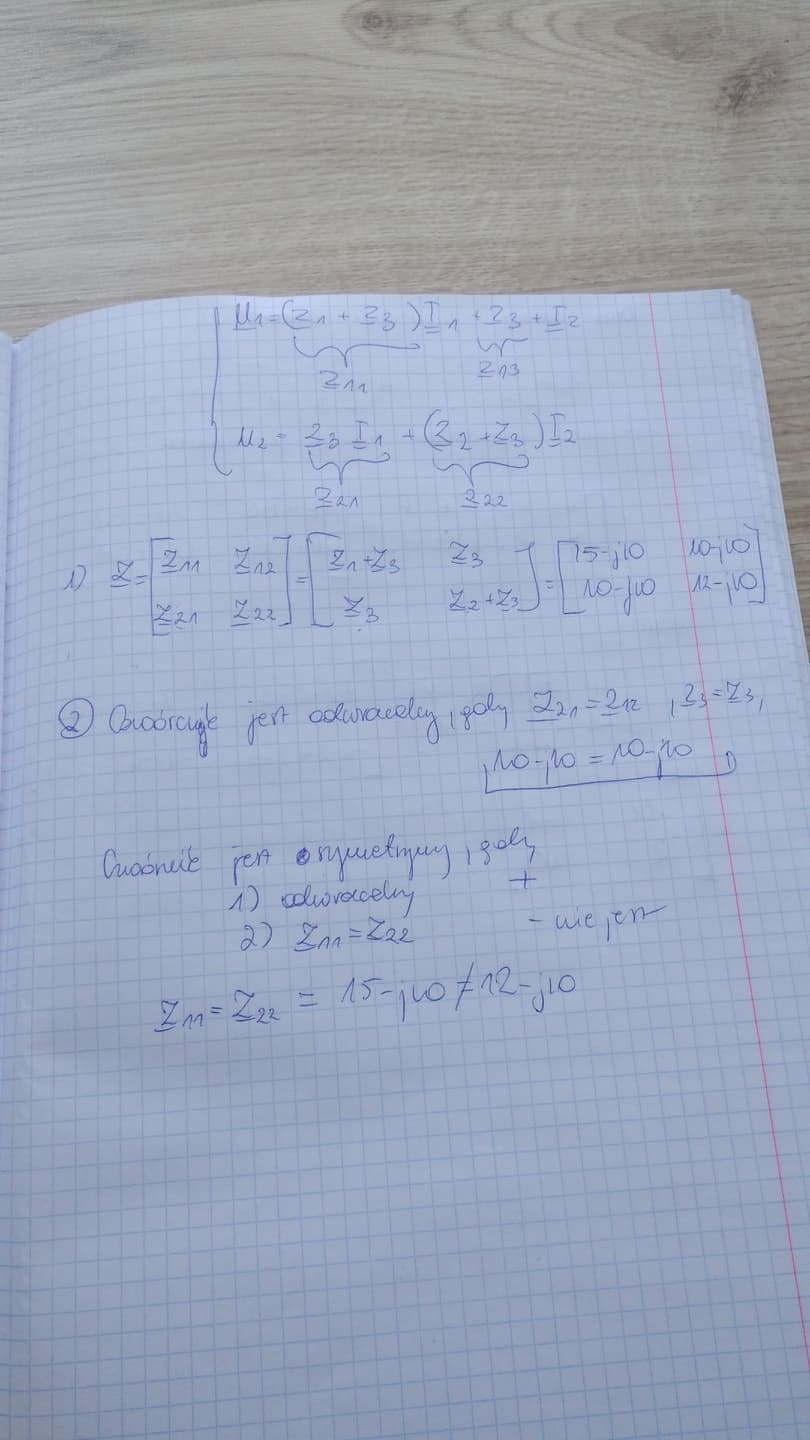 U1=(Z1+Z3)I1+Z3+I2
Z11 Z13
U2=Z3I1+(Z2+Z3)I2
Z21 Z22
1) Z=[Z11 Z12 = [Z1+Z3 Z3 = [15-j10 10-j10]
Z21 Z22] Z3 Z2+Z3] 10-j10 12-j10]
2 jest odwracalny, gdy Z21=Z12, Z3=Z3,
10-j10=10-j10
jest symetryczny, gdy
1) odwracalny +
2) Z11=Z22 - nie jest
Z11=Z22 = 15-j10≠12-j10